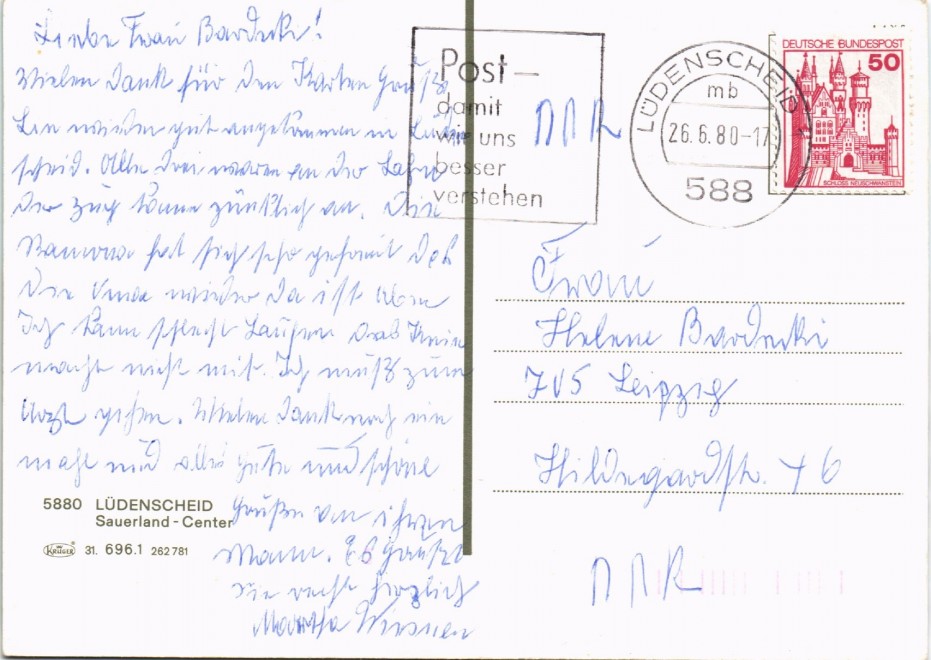 Liebe Frau Bardecki!
Vielen Dank für den Karten Gruß
Bin wieder gut angekommen in Lüden
scheid. Alle drei waren an der Bahn
Der Zug kamm pünktlich an. Die
Ramona hat sich sehr gefreut das
die Oma wieder da ist. Aber
Ich kann schlecht Laufen das Knie
macht nicht mit. Ich muß zum
Arzt gehen. Vielen Dank noch ein
mahl und alles gute und schöne
Grüße an ihren
Mann. Es Grüßt
sie recht herzlich
Martha
Post –
damit
wir uns
besser
verstehen
DDR
LÜDENSCHEID
mb
26.6.80-17
588
DEUTSCHE BUNDESPOST
50
SCHLOSS NEUSCHWANSTEIN
Frau
Helene Bardecki
705 Leipzig
Hildegardstr. 46
DDR
5880 LÜDENSCHEID
Sauerland-Center
KRÜGER 31. 696.1 262781